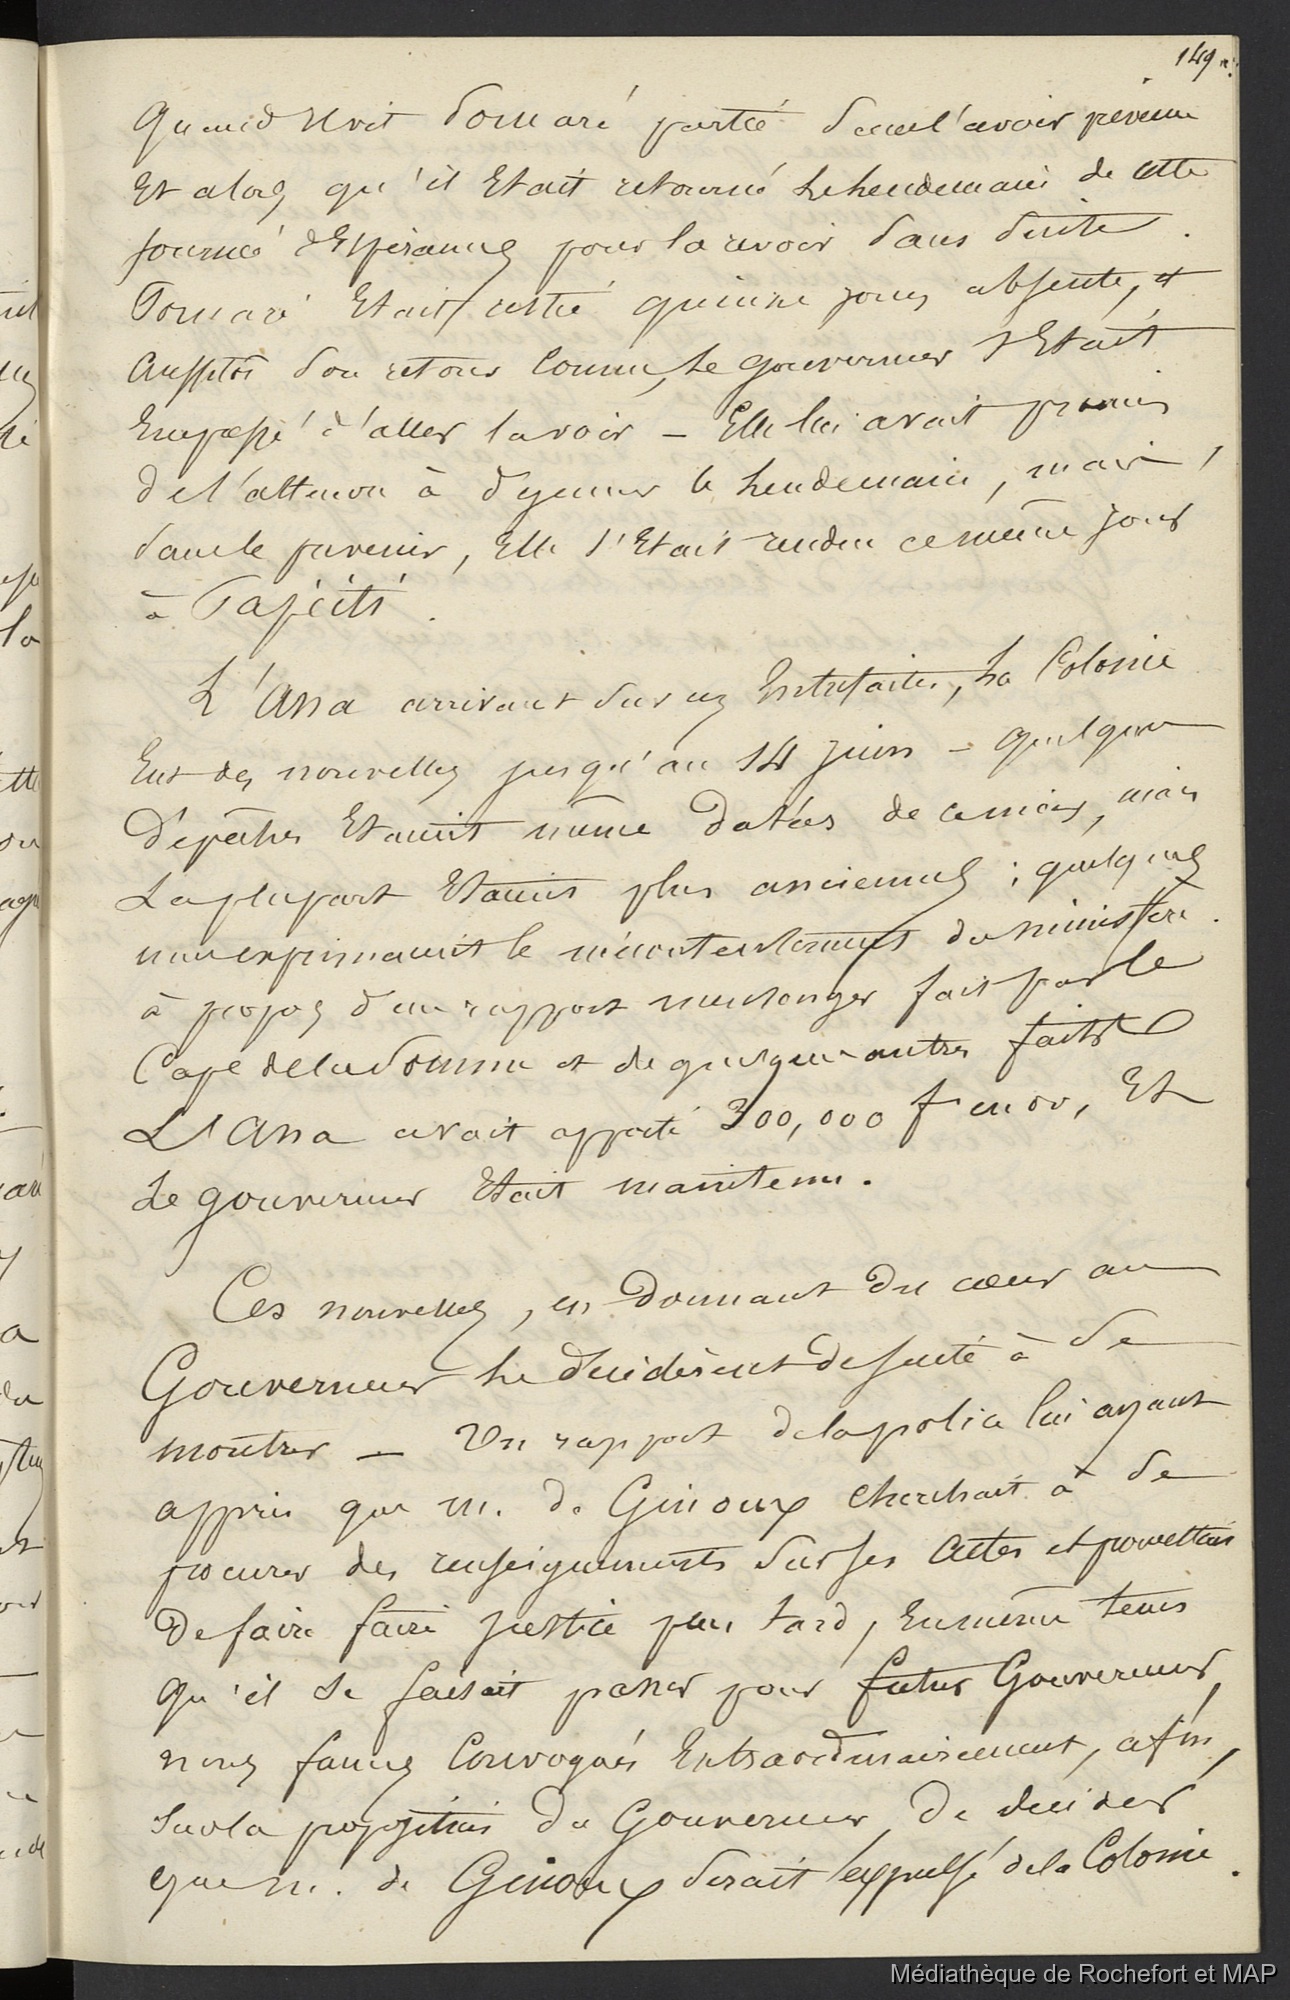 149
Quand il vit Pomaré partie sans l'avoir prévenu
Et alors qu'il Etait retourné le lendemain de cette
journée d'Espérances pour la revoir sans suite.
Pomaré Etait restée quinze jours absente, et
aussitôt son retour connu, le gouverneur s'Etait
Empressé d'aller la voir - Elle lui avait promis
de l'attendre à déjeuner le lendemain, mais,
sans le prévenir, Elle s'Etait rendue ce même jour
à Papéiti.
L'Ana arrivant sur ces Entrefaites, La Colonie
Eut des nouvelles jusqu'au 14 juin - quelques
Dépêches Etaient même datées de ce mois, mais
La plupart Etaient plus anciennes ; quelques
unes exprimaient le mécontentement du ministère
à propos d'un rapport mensonger fait par le
Cape de la Somme et de quelques autres faits
L'Ana avait apporté 300,000 f en or, Et
Le gouverneur Etait maintenu.
Ces nouvelles, en Donnant Du cœur au
Gouverneur le décidèrent de suite à se
montrer - Un rapport de la police lui ayant
appris que m. de Ginoux cherchait à se
procurer des renseignements sur ses actes et promettait
De faire faire justice plus tard, En même tems
qu'il se faisait passer pour futur Gouverneur,
nous fumes Convoqués Extraordinairement, afin,
sur la proposition du Gouverneur, De décider
que m. de Ginoux serait expulsé de la Colonie.
Médiathèque de Rochefort et MAP